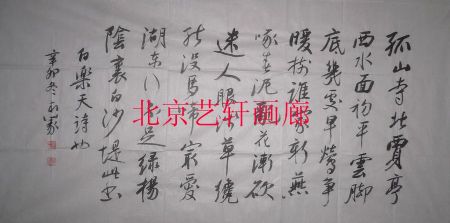 孤山寺北賈亭
西水面初平雲脚
底幾處早鶯爭
暖樹誰家新燕
啄春泥亂花漸欲
迷人眼浅草纔
能没馬蹄最愛
湖东行不足绿楊
陰裏白沙堤此
白樂天詩也
辛卯冬
北京艺轩画廊